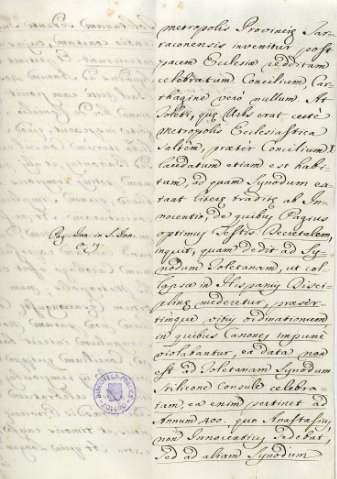 metropolis Provinciæ Tar-
raconensis invenitur post
pacem Ecclesiæ redditam
celebratum Concilium, Car-
thagine vero nullum. At
Toleti, quæ Urbs erat certe
metropolis Ecclesiastica
saltem, præter Concilium I.
laudatum etiam est habi-
tum, ad quam Synodum ex-
tant literæ traditæ ab In-
nocentio, de quibus Pagius
optimus Testis. Decretalem,
inquit, quam dedit ad Sy-
nodum Toletanam, ut col-
lapsæ in Hispanijs Disci-
plinæ mederetur, præser-
timque vitijs ordinationum,
in quibus Canones impune
violabantur, ea data non
est ad Toletanam Synodum
Stilicone Consule celebra-
tam, ea enim pertinet ad
Annum 400. quo Anastasius,
non Innocentius sedebat,
sed ad aliam Synodum
Pag.